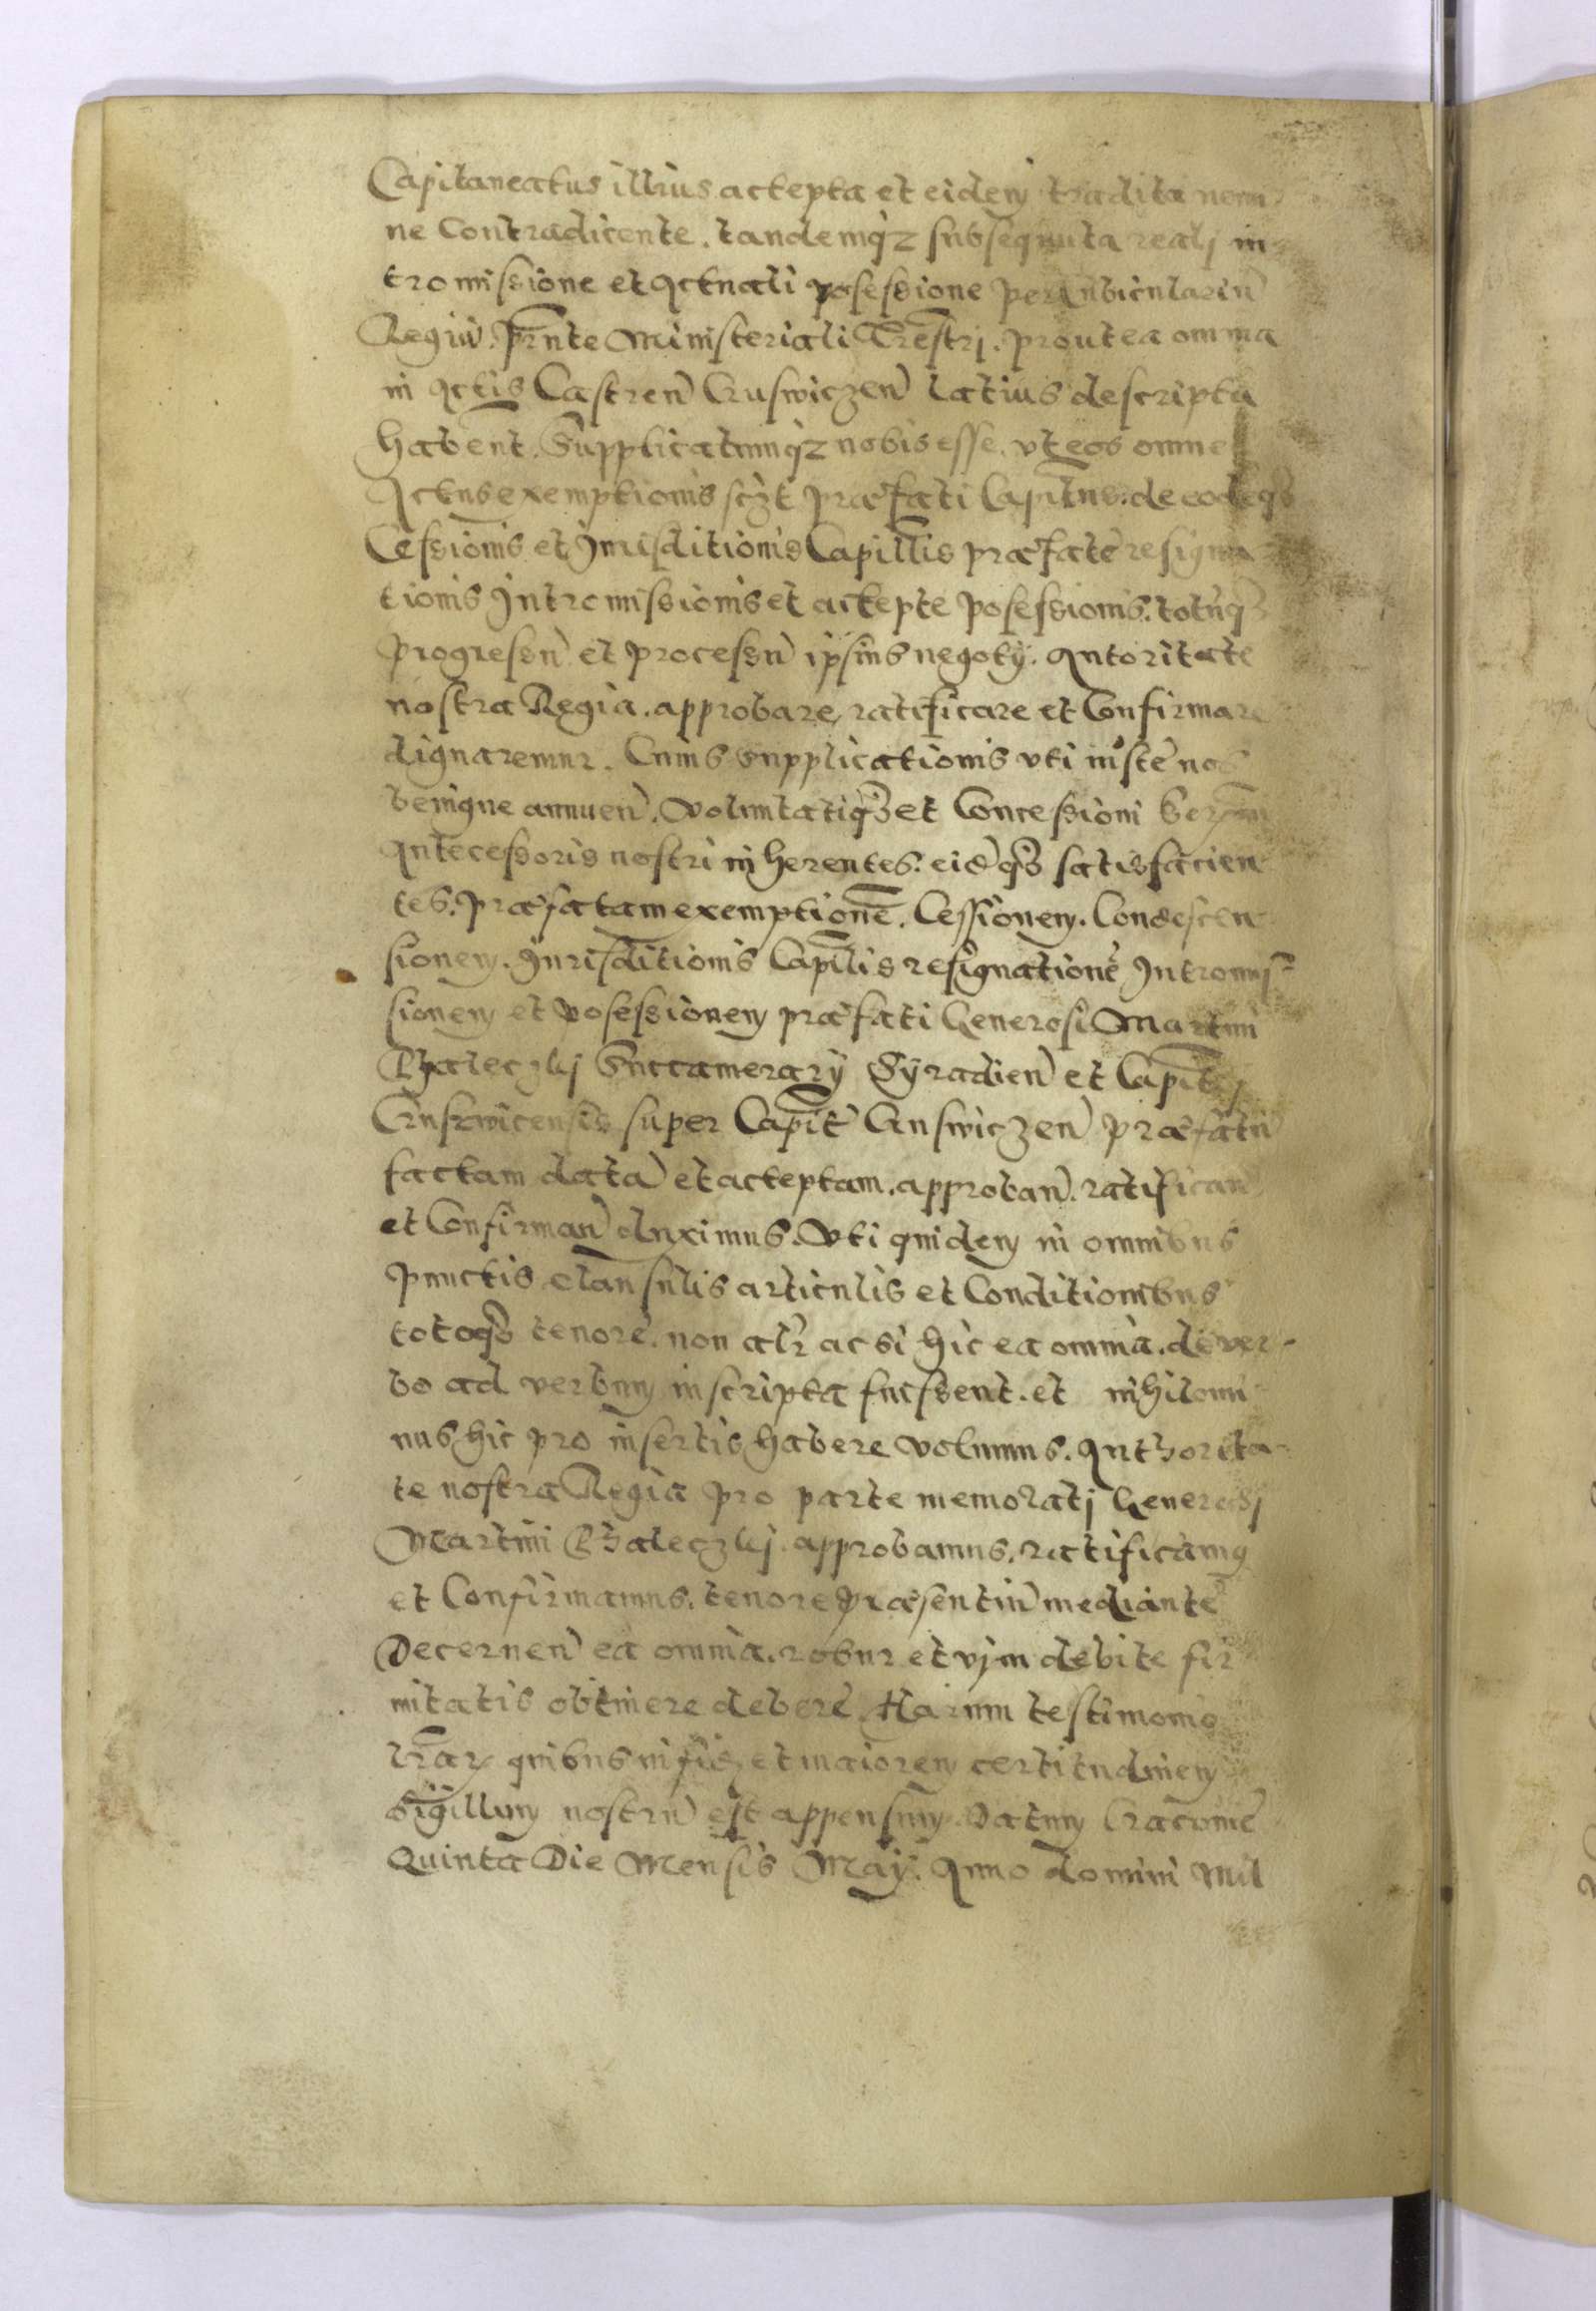 Capitaneatus illius accepta et eidem tradita nemi
ne Contradicente. tandemqz subsequuta realj in
tromissione et Actuali posessione per Cubicularin̄
Regiū. pn̄te Ministeriali Trēstrj. prout ea omnia
in Actis Castren̄ Cruswiczen̄ latius descripta
habent. Supplicatumqz nobis esse. vt eos omne
Actus exemptionis sczt præfati Capitnus. de eodeqz
Cessionis et Jurisditionis Capitlis præfate resigna
tionis Intromissionis et accepte posessionis. totūqz
progressū et processū ipsius negotÿ. Autoritate
nostra Regia. approbare, ratificare et Confirmare
dignaremur. Cuius supplicationis vti iuste nos
benigne annuen̄. Voluntatiqz et Concessioni
Antecessoris nostri in herentes. eisqz satisfacien
tes. præfatam exemptionē. Cessionem. Condescen
sionem. Jurisditionis Capitlis resignationē Intromis
sionem et posessionem præfati Generosi Martini
Zaleczkj Succamerarÿ Syradien̄ et Capitej
Cruswicensis super Capit̄ Cruswiczen̄ præfatū
factam datā et acceptam. approban̄. ratifican̄
et Confirman̄ duximus. Vti quidem in omnibus
punctis clausulis articulis et Conditionibus
totoqz tenore. non alr̄ ac si hic ea omnia. de ver-
bo ad verbum inscripta fuissent. et nihilomi
nus hic pro insertis habere volumus. Authorita
te nostra Regia pro parte memoratj Generosj
Martini Zaleczkj. approbamus. ratificamus
et Confirmamus. tenore præsentiū mediante
Decernen̄ ea omnia. robur et vim debite fir
mitatis obtinere debere. Harum testimonio
lrāꝝ quibus in fidē et maiorem certitudinem
Sigillum nostrū est appensum. Datum Cracovie
Quinta Die Mensis Maÿ. Anno domini Mil